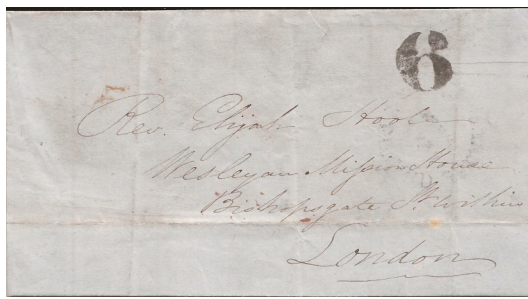 6
Rev. Elijah Hool
Wesleyan Mission House
Bishopsgate St. Within
London